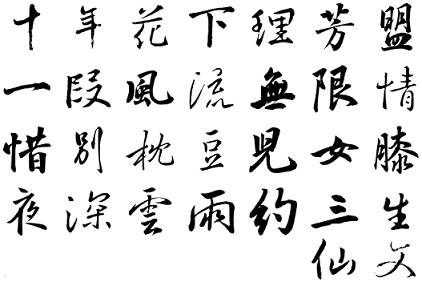 十年花下理芳盟
一段風流無限情
惜別枕豆児女膝
夜深雲雨約三生
仙文